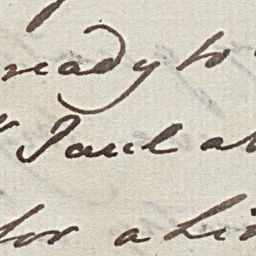 ready to
Paul at
for a Li